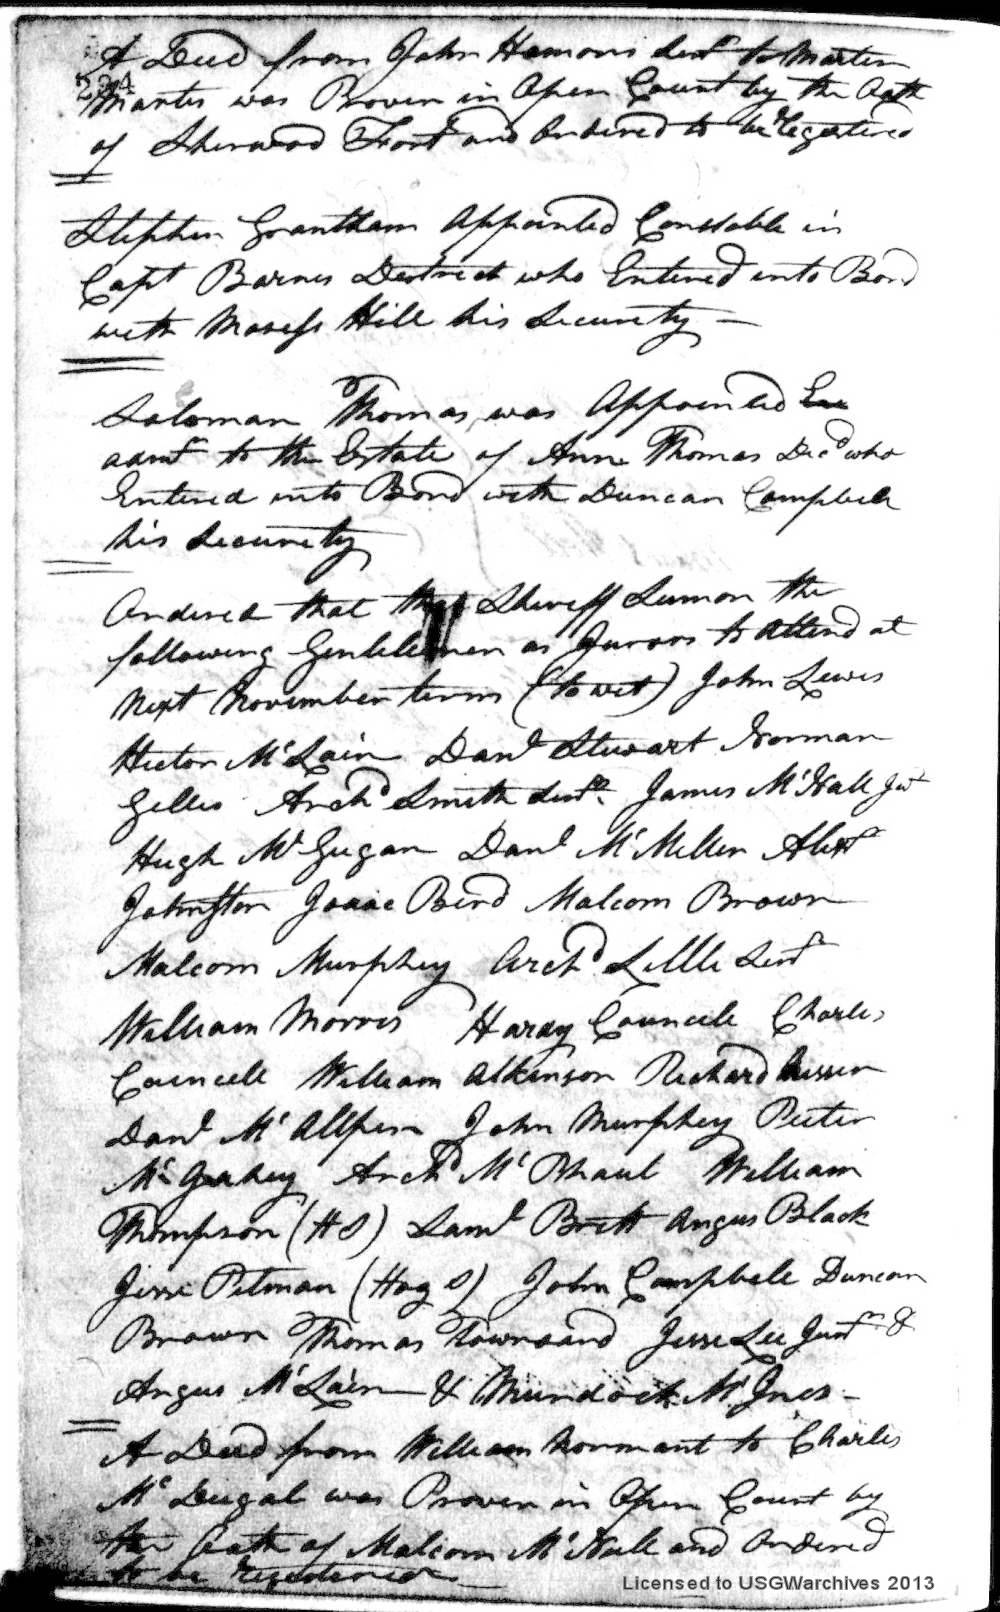 A Deed from John Hamons Senr to Martin
234
Martin was Proven in Open Court by the Oath
of Sherwood Fort and Ordered to be Registered
Stephen Grantham Appointed Constable in
Capt Barnes Destrect who Entered into Bond
with Mosess Hill his Security
Saloman Thomas was Appointed
admr to the Estate of Anne Thomas Decd who
Entered into Bond with Duncan Campbell
his Security
Ordered that the Sheriff Sumon the
following Gentlemen as Jurors to attend at
Next November term (to wit) John Lewis
Hector McLain Danl Stewart Norman
Gilles Archd Smith Senr James McNall Jur
Hugh McGugan Danl McMillen Alexr
Johnston Isaac Bird Malcom Brown
Malcom Murphey Archd Little Senr
William Morris Hardy Councell Charles
Councell William Atkinson Richard
Danl McAllpin John Murphey Peeter
McGahey Archd McPhaul William
Thompson (H S) Saml Britt Angus Black
Jesse Pitman (Hog S) John Campbell Duncan
Brown Thomas Townsand Jesse Lee Junr &
Angus McLain & Murdock McInes
A Deed from William Normant to Charles
McDugal was Proven in Open Court by
the Oath of Malcom McNall and Ordered
to be Registered
Licensed to USGWarchives 2013